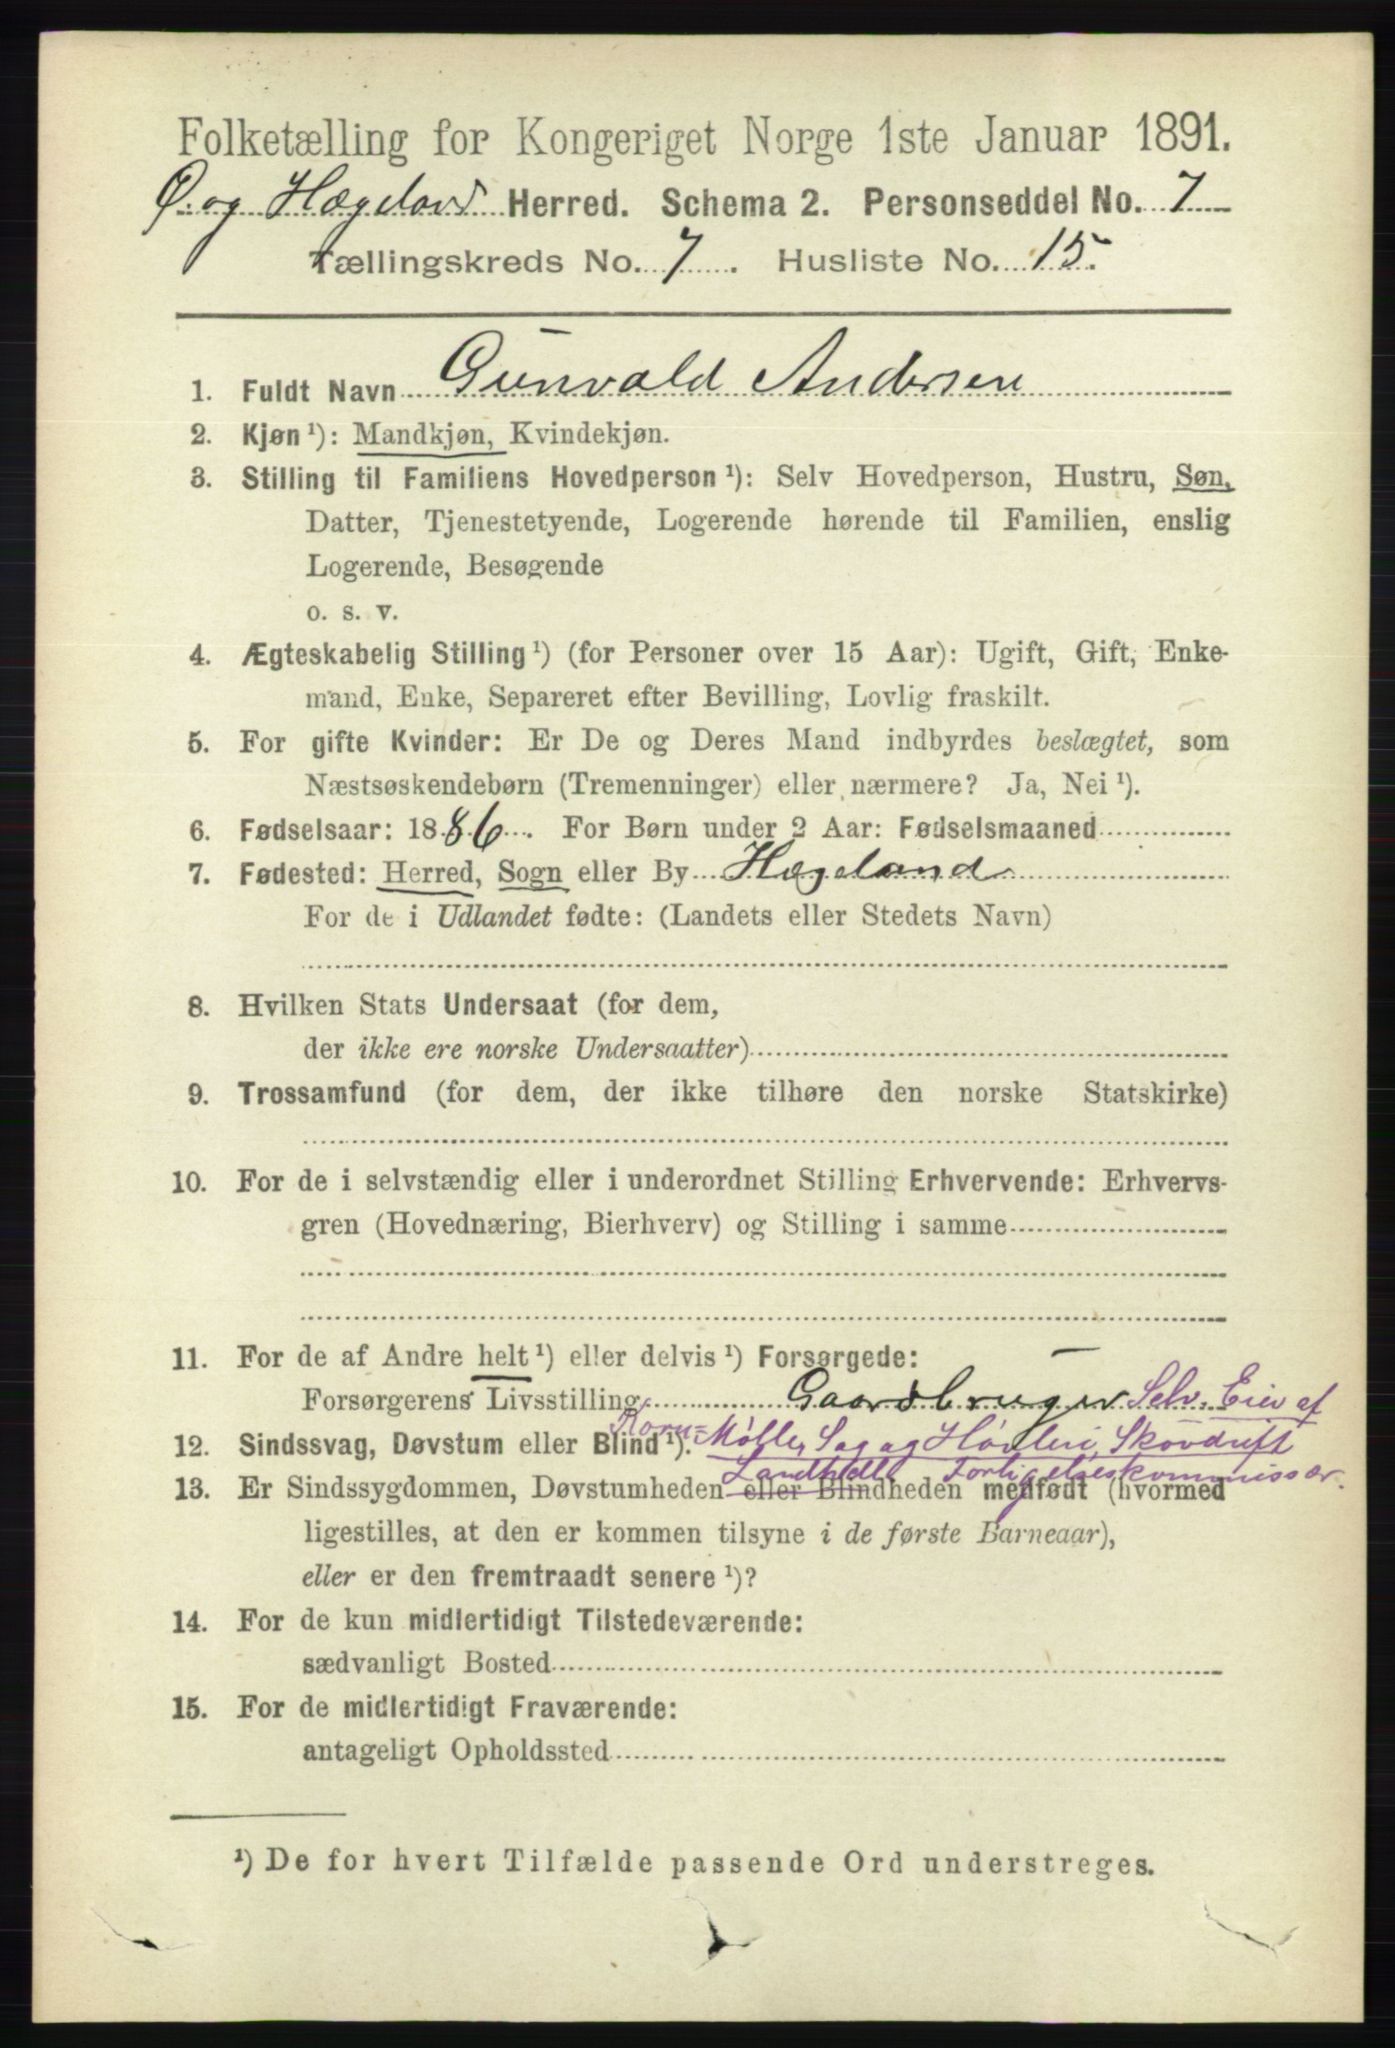 Folketælling for Kongeriget Norge 1ste Januar 1891.
Ø. og Hægeland Herred. Schema 2. Personseddel No. 7
Tællingskreds No. 7. Husliste No. 15.
1. Fuldt Navn Gunvald Andersen
2. Kjøn ¹): Mandkjøn, Kvindekjøn.
3. Stilling til Familiens Hovedperson ¹): Selv Hovedperson, Hustru, Søn,
Datter, Tjenestetyende, Logerende hørende til Familien, enslig
Logerende, Besøgende
o. s. v.
4. Ægteskabelig Stilling ¹) (for Personer over 15 Aar): Ugift, Gift, Enke-
mand, Enke, Separeret efter Bevilling, Lovlig fraskilt.
5. For gifte Kvinder: Er De og Deres Mand indbyrdes beslægtet, som
Næstsøskendebørn (Tremenninger) eller nærmere? Ja, Nei ¹).
6. Fødselsaar: 1886. For Børn under 2 Aar: Fødselsmaaned
7. Fødested: Herred, Sogn eller By Hægeland
For de i Udlandet fødte: (Landets eller Stedets Navn)
8. Hvilken Stats Undersaat (for dem,
der ikke ere norske Undersaatter)
9. Trossamfund (for dem, der ikke tilhøre den norske Statskirke)
10. For de i selvstændig eller i underordnet Stilling Erhvervende: Erhvervs-
gren (Hovednæring, Bierhverv) og Stilling i samme
11. For de af Andre helt ¹) eller delvis ¹) Forsørgede:
Forsørgerens Livsstilling Gaardbruger Selv. Eier af
Korn-Mølle, Sag og Høvleri, Skovdrift
12. Sindssvag, Døvstum eller Blind ¹).
Landhdl Forligelseskommissær.
13. Er Sindssygdommen, Døvstumheden eller Blindheden medfødt (hvormed
ligestilles, at den er kommen tilsyne i de første Barneaar),
eller er den fremtraadt senere ¹)?
14. For de kun midlertidigt Tilstedeværende:
sædvanligt Bosted
15. For de midlertidigt Fraværende:
antageligt Opholdssted
¹) De for hvert Tilfælde passende Ord understreges.